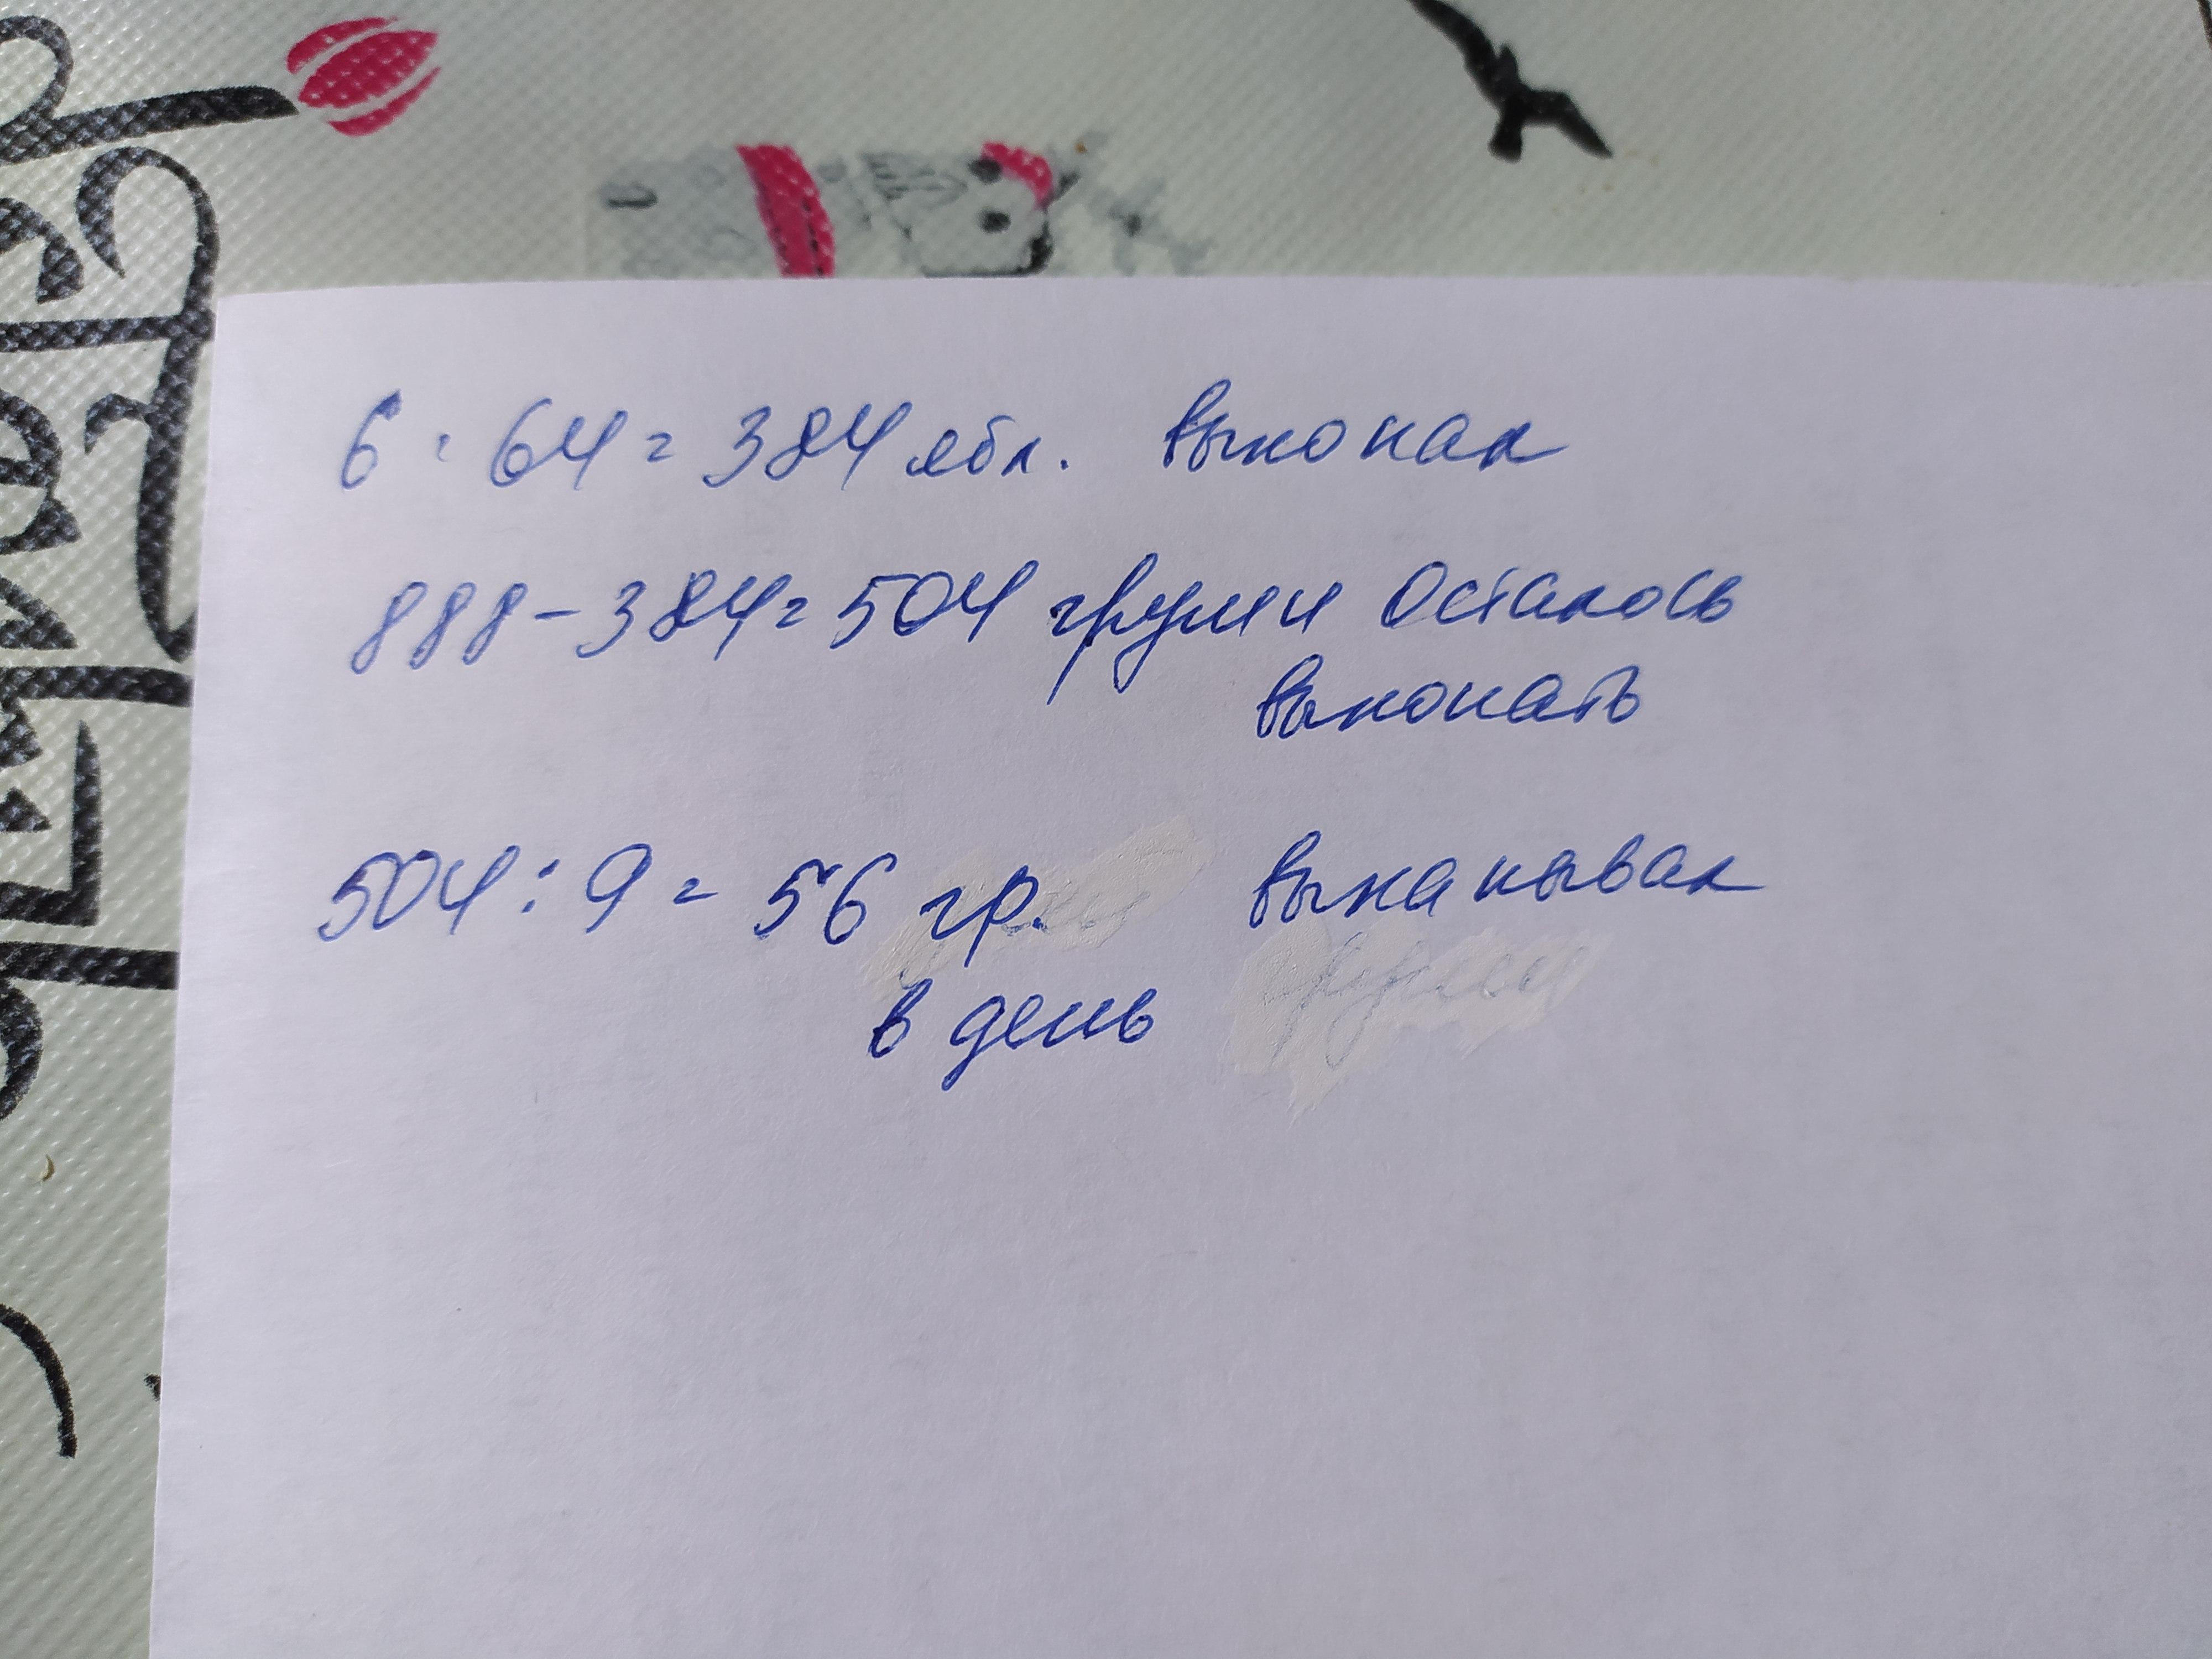 6 · 64 = 384 ябл. выкопал
888 - 384 = 504 груши осталось
выкопать
504 : 9 = 56 гр. выкапывал
в день